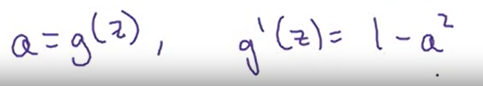 a = g(z), g'(z) = 1 - a²